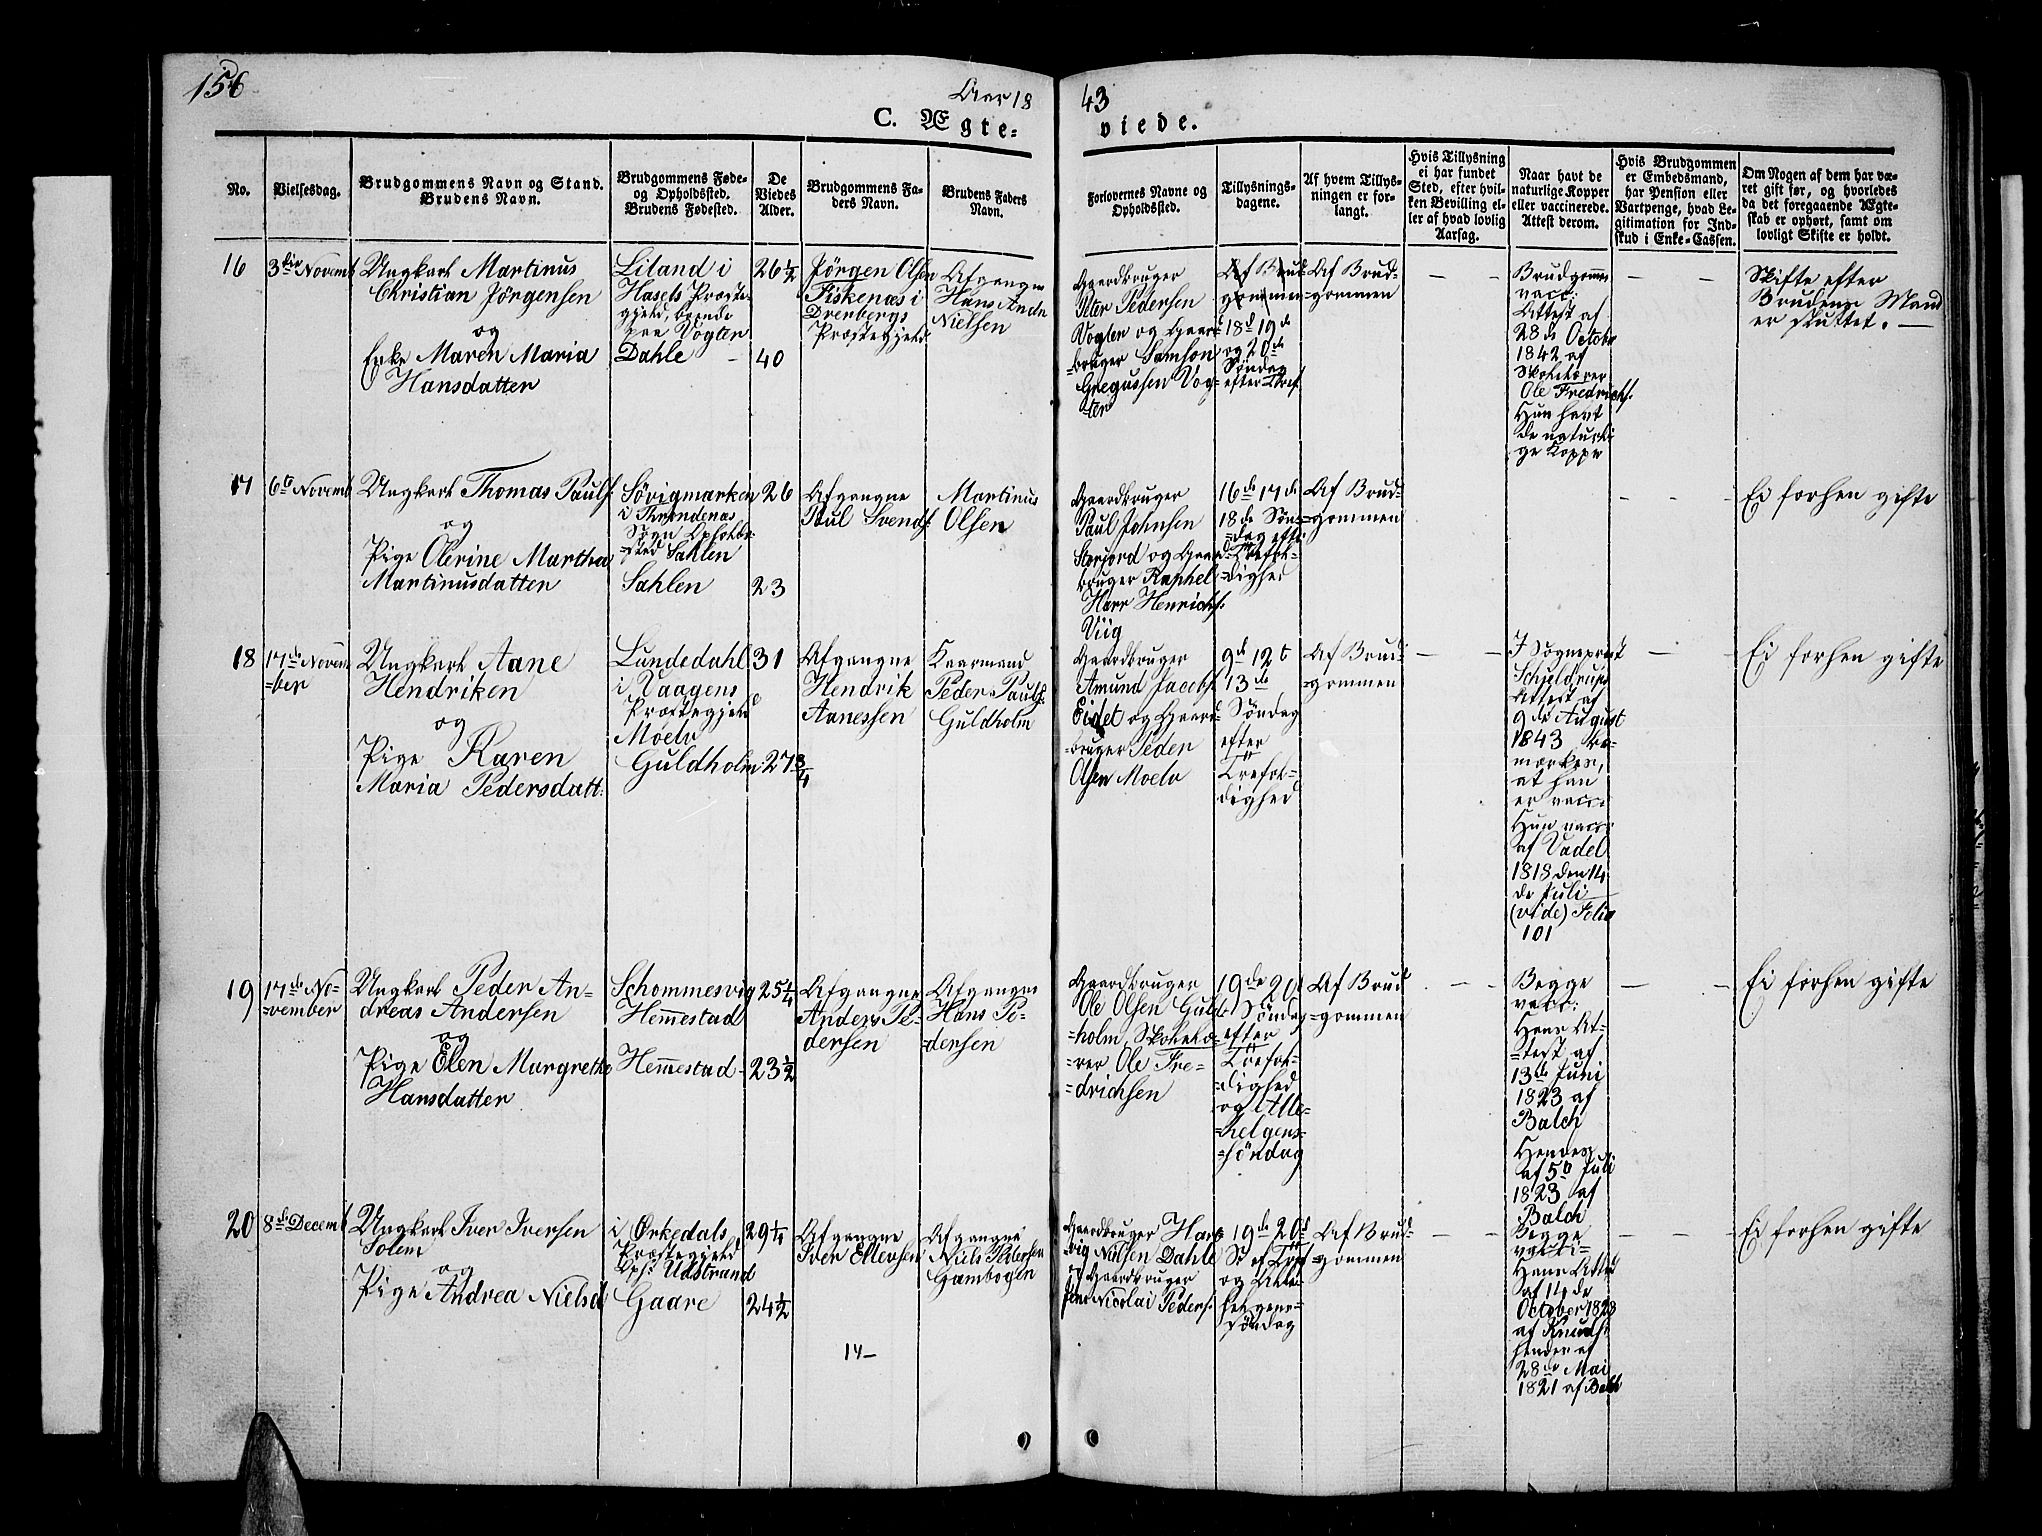 156
Aar 18
43
C. Ægte=
viede.
No.
Vielsesdag.
Brudgommens Navn og Stand.
Brudens Navn.
Brudgommens Føde-
og Opholdssted.
Brudens Fødested.
De
Viedes
Alder.
Brudgommens Fa-
ders Navn.
Brudens Faders
Navn.
Forlovernes Navne og
Opholdssted.
Tillysnings-
dagene.
Af hvem Tillys-
ningen er for-
langt.
Hvis Tillysning
ei har fundet
Sted, efter hvil-
ken Bevilling el-
ler af hvad lovlig
Aarsag.
Naar havt de
naturlige Kopper
eller vaccinerede.
Attest derom.
Hvis Brudgommen
er Embedsmand,
har Pension eller
Vartpenge, hvad Le-
gitimation for Ind-
skud i Enke-Cassen.
Om Nogen af dem har væ-
ret gift før, og hvorledes
da det foregaaende Ægte-
skab er ophørt, samt om
lovligt Skifte er holdt.
16
3die Novemb
Ungkarl Martinus
Christian Jörgensen
og
Enke Maren Maria
Hansdatter
Liland i
Hasels Præste-
gjeld, boende
paa Vogter
Dahle -
26 1/2
40
Jörgen Olsen
Fiskenæs i
Præstegjeld
Afgangne
Hans Andr
Nielsen
Gaardbruger
Peter Pedersen
Vogten og Gaard
=bruger Samson
Gregussen Vog=
ten
Af Brud
gommen
18d 19de
og 20de
Söndag
efter Tref.
Af Brud-
=gommen
Brudgomm
vacc:
Attest af
28de Octobr
1842 af
Skolelærer
Ole Fredrichs.
Hun havt
de naturli
ge Kopper
Skifte efter
Brudens Mand
er sluttet. —
17
6te Novemb
Ungkarl Thomas Pauls.
og
Pige Olerine Martha
Martinusdatter
Sörvigmarken
i Throndenæs
Sogn Opholds-
=sted Sahlen
Sahlen
26
23
Afgangne
Paul Svends.
Martinus
Olsen
Gaardbruger
Paul Johnsen
Storjord og Gaard
bruger Raphel
Harr Henrichs:
Viig
16de 17de
18de Sön=
=dag efter
Trefol=
=dighed
Af Brud=
=gommen
Ei forhen gifte
18
17de Novem
=ber
Ungkarl Aane
Hendriken
og
Pige Karen
Maria Pedersdatt:
Lundedahl
i Vaagens
Præstegjeld
Moelv
Guldholm
31
27 3/4
Afgangne
Hendrik
Aanessen
Kaarmand
Peder Pauls.
Guldholm
Gaardbruger
Amund Jacobs.
Eidet og Gaard
=bruger Peder
Olsen Moelv
9de 12t
13de
Söndag
efter
Trefol=
dighed
Af Brud
=gommen
I Sognepræst
Schjeldrups
Attest af
9de August
1843 be-
mærkes,
at han
er vacc:
Hun vacc:
af Vadel
1818 den 14
de Juli
(vide) Folio
101
Ei forhen gifte
19
17de No=
=vember
Ungkarl Peder An=
dreas Andersen
og
Pige Elen Margrethe
Hansdatter
Schommesvig
Hem̄estad
Hem̄estad
25 1/4
23 1/2
Afgangne
Anders Pe=
dersen
Afgangne
Hans Pe=
=dersen
Gaardbruger
Ole Olsen Guld
=holm, Skolelæ=
=rer Ole Fre=
=drichsen
19de 20d
Söndag
efter
Trefol=
=dighed
og Alle=
=helgens=
=söndag
Af Brud
=gommen
Begge
vacc:
Hans At=
=test af
13de Juni
1823 af
Balch
Hendes
af 5te Juli
1823 af
Balch
Ei forhen gifte
20
8de Decemb
Ungkarl Iver Iversen
Solem
og
Pige Andrea Nielsd
i Ørkedals
Præstegjeld
Ops: Udstrand
Gaare
29 1/4
24 1/2
Afgangne
Iver Ellevsen
14—
Afgangne
Niels Pedersen
Gambogen
Gaardbruger Hart
vig Nielsen Dahle
og Gaardbruger
Jens Nicolai Peders.
19de 20d
S. ef. Tref
og Alle=
helgens=
söndag
Af Brud=
=gommen
Begge
vacc:
Hans Attest
af 14de
October 1828
af
hendes af
28de Mai
1821 af Balch
Ei forhen gifte